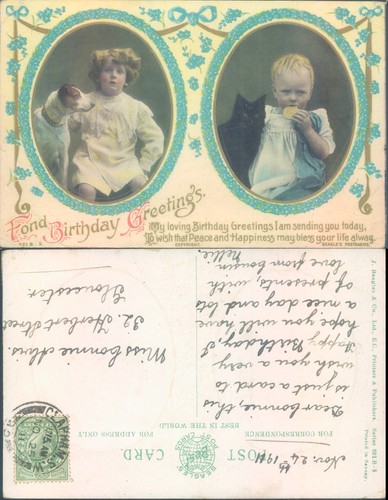 Fond Birthday Greetings.
My loving Birthday Greetings I am sending you today,
To wish that Peace and Happiness may bless your life alway.
COPYRIGHT.
BEAGLES POSTCARDS.
POST CARD
BEAGLES POST CARDS
BEST IN THE WORLD
FOR ADDRESS ONLY
Nov. 24th 1911
Dear Connie, this
is just a card to
wish you a very
Happy Birthday, I
hope you will have
a nice day and lots
of presents, with
love from
Nellie.
Miss Connie
32. Herbert Street
Gloucester.
CLAPHAM. S.W.
J. Beagles & Co., Ltd., E.C., Printers & Publishers. Series 921 B-S
Printed in Saxony.